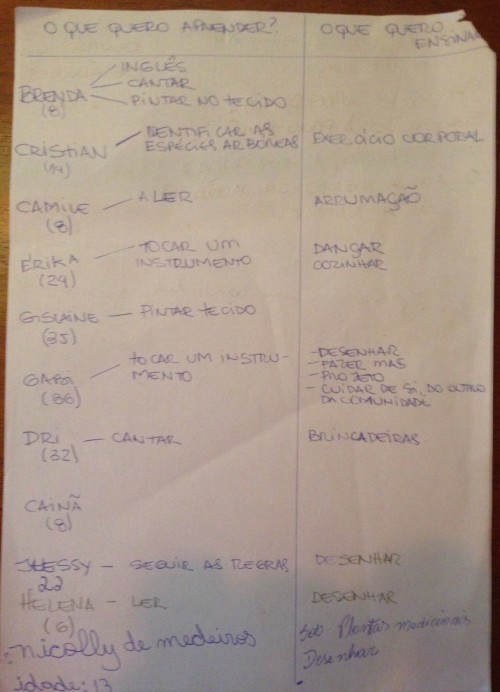 O QUE QUERO APRENDER? O QUE QUERO ENSINAR
INGLÊS
BRENDA CANTAR
(8) PINTAR NO TECIDO
CRISTIAN IDENTIFICAR AS
(14) ESPÉCIES ARBÓREAS EXERCÍCIO CORPORAL
CAMILE — A LER ARRUMAÇÃO
(8)
ÉRIKA — TOCAR UM DANÇAR
(29) INSTRUMENTO COZINHAR
GISLAINE — PINTAR TECIDO
(35)
GABI — TOCAR UM INSTRU- - DESENHAR
(86) MENTO - FAZER MAS
- PROJETO
- CUIDAR DE SI, DO OUTRO
DA COMUNIDADE
DRI — CANTAR BRINCADEIRAS
(32)
CAINÃ
(8)
JHESSY — SEGUIR AS REGRAS DESENHAR
22
HELENA - LER DESENHAR
(6)
nicolly de medeiros Plantas medicinais
Desenhar
idade: 13